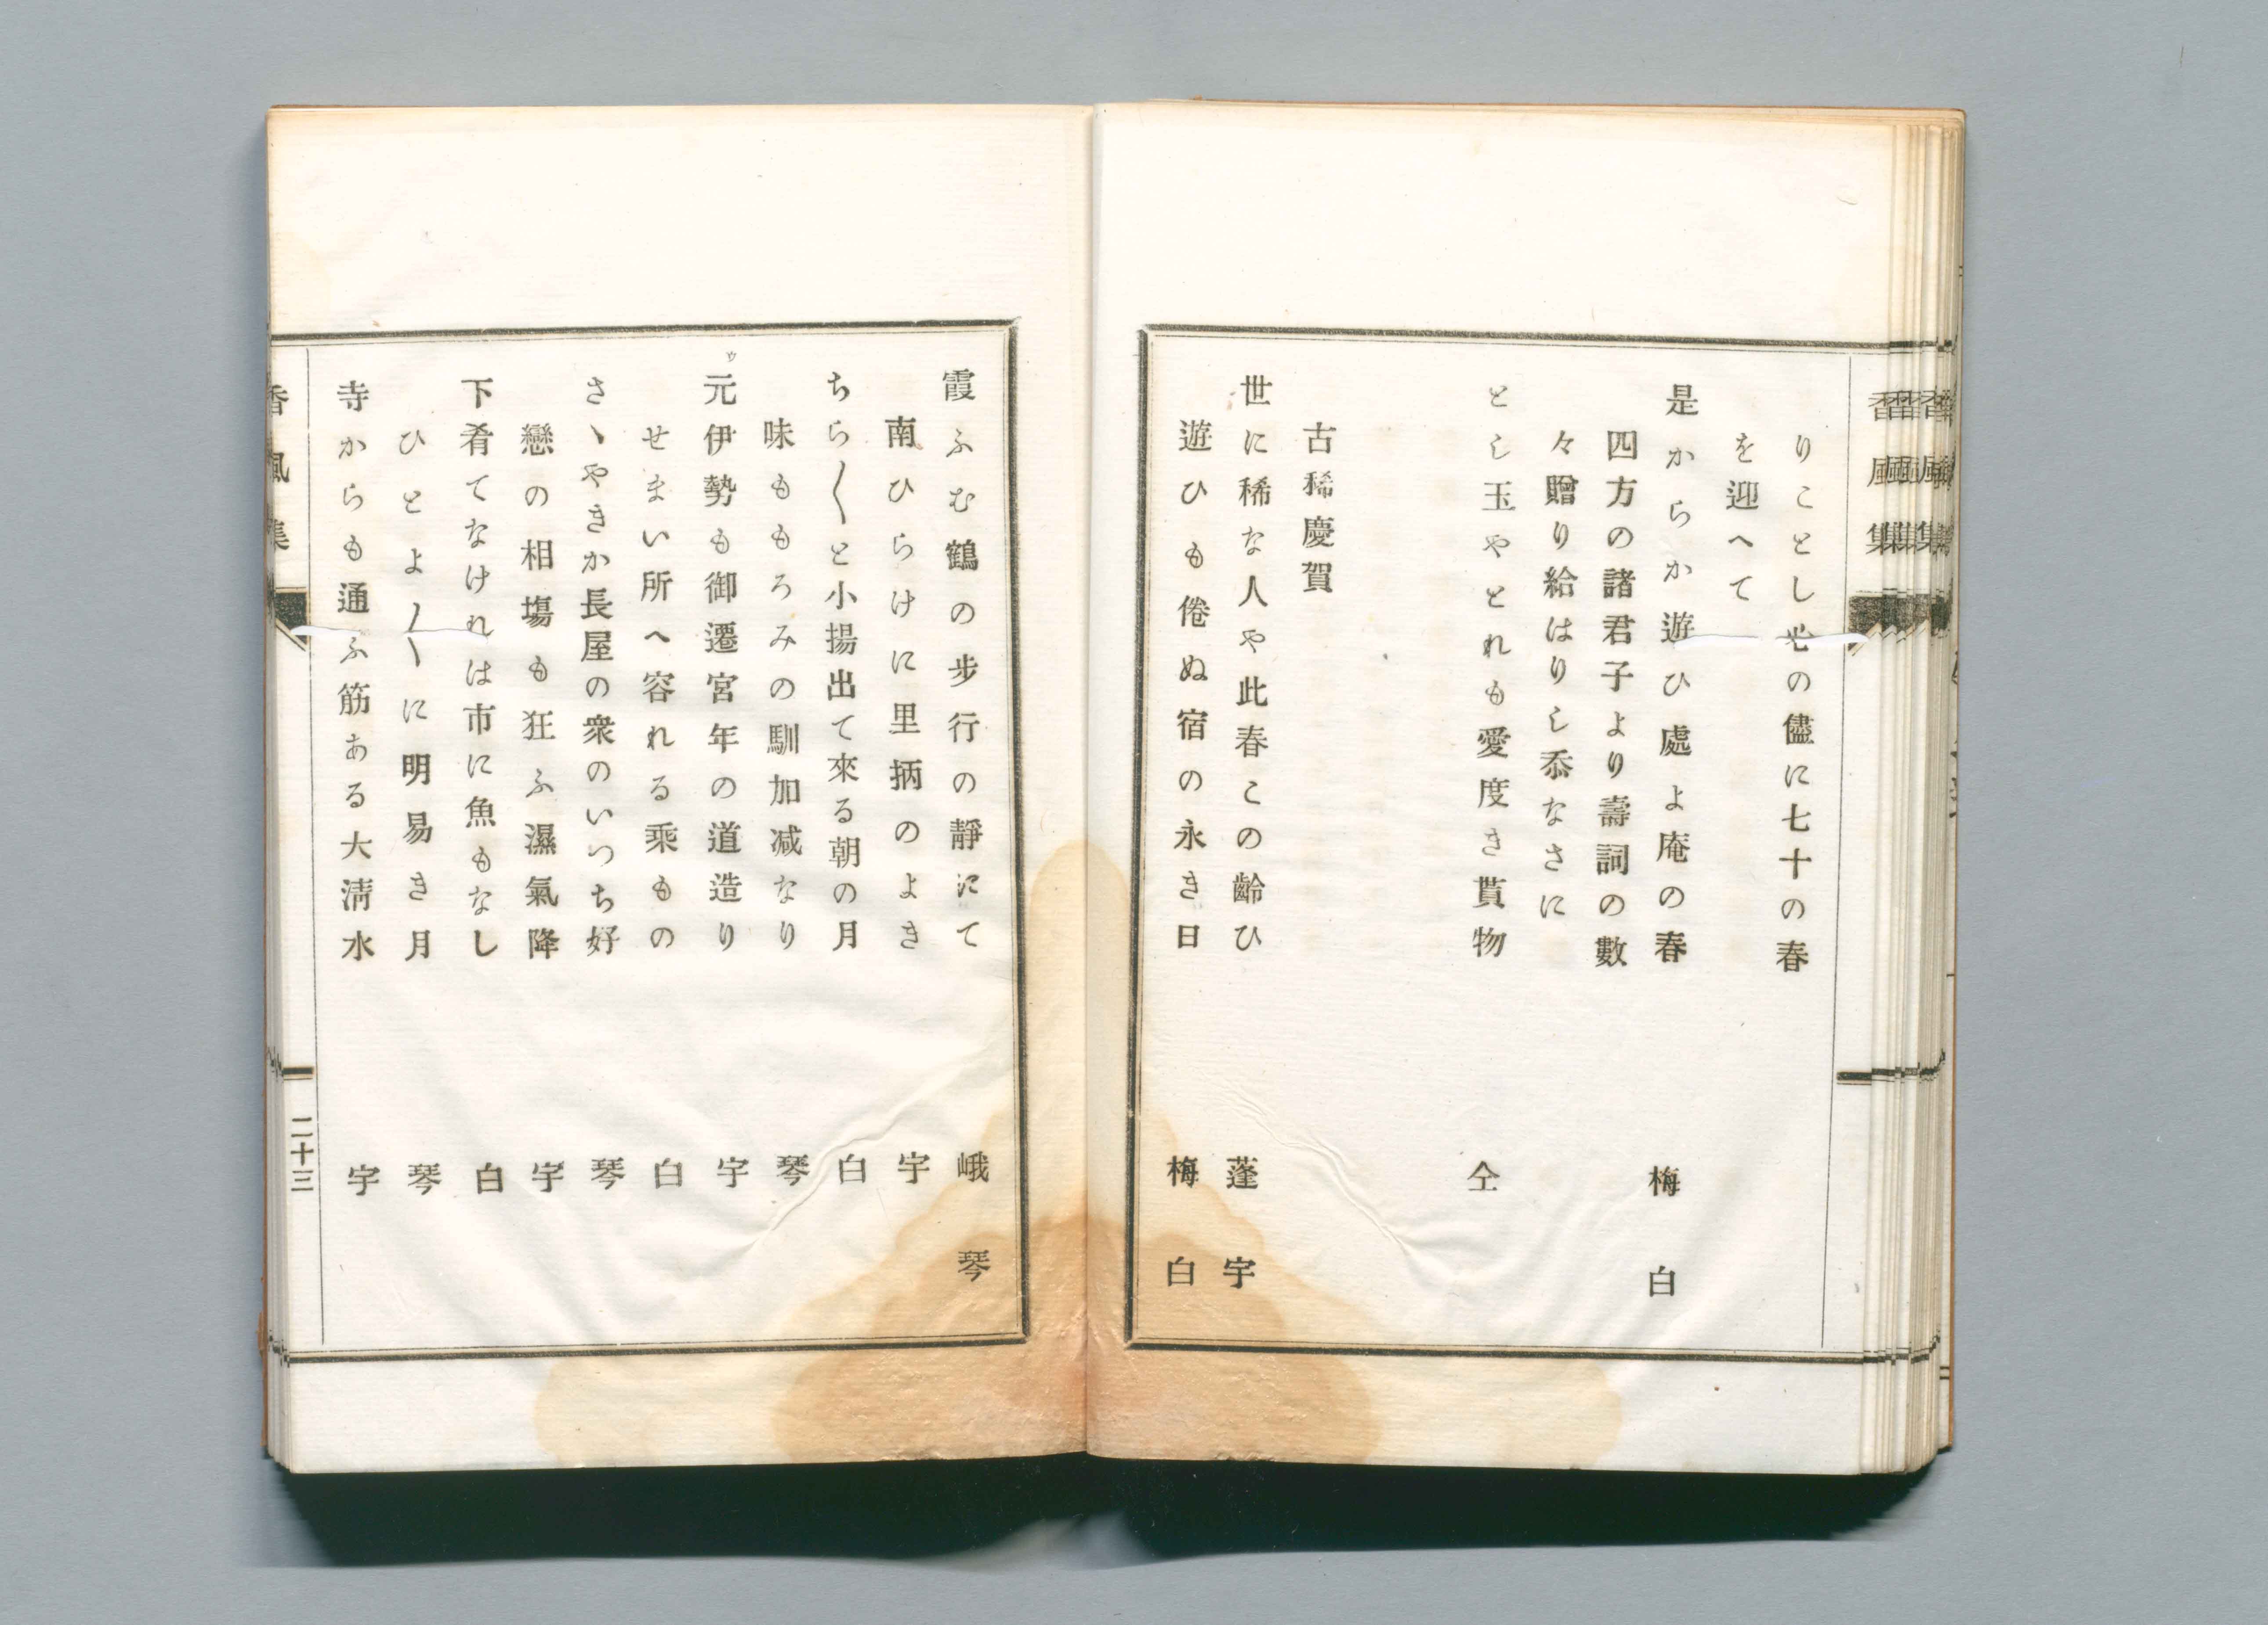 りことし世の儘に七十の春
を迎へて
是からか遊ひ處よ庵の春 梅白
四方の諸君子より壽詞の數
々贈り給はりし忝なさに
とし玉やとれも愛度き貰物 仝
古稀慶賀
世に稀な人や此春この齡ひ 蓬宇
遊ひも倦ぬ宿の永き日 梅白
霞ふむ鶴の步行の靜にて 峨琴
南ひらけに里抦のよき 宇
ちら〱と小揚出て來る朝の月 白
味ももろみの馴加减なり 琴
ゥ元伊勢も御遷宮年の道造り 宇
せまい所へ容れる乘もの 白
さゝやきか長屋の衆のいつち好 琴
戀の相塲も狂ふ濕氣降 宇
下肴てなけれは市に魚もなし 白
ひとよ〱に明易き月 琴
寺からも通ふ筋ある大淸水 宇
香風集
二十三